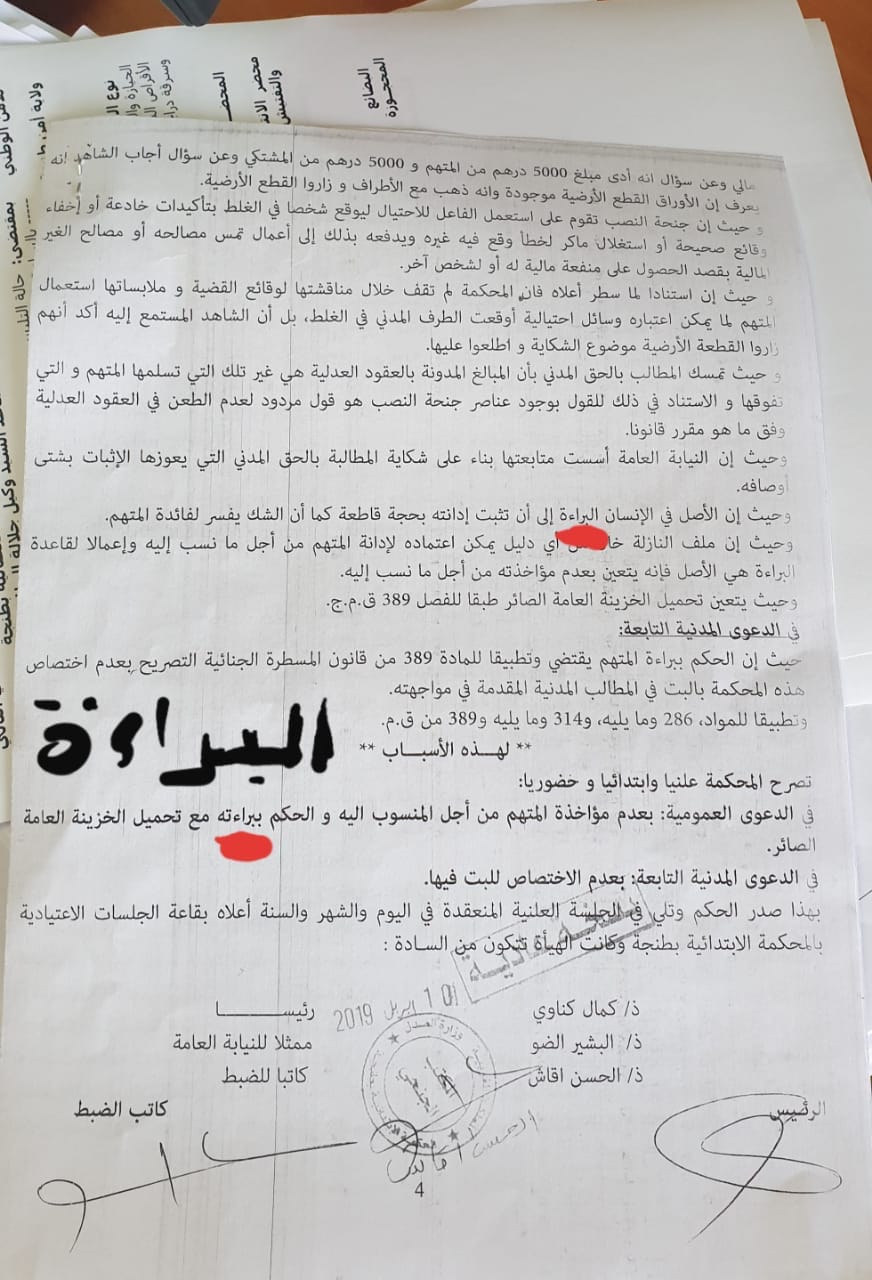 البضائع
المحجوزة
مالي وعن سؤال انه أدى مبلغ 5000 درهم من المتهم و 5000 درهم من المشتكي وعن سؤال أجاب الشاهد انه
يعرف إن الأوراق القطع الأرضية موجودة وانه ذهب مع الأطراف و زاروا القطع الأرضية.
و حيث إن جنحة النصب تقوم على استعمل الفاعل للاحتيال ليوقع شخصا في الغلط بتأكيدات خادعة أو إخفاء
وقائع صحيحة أو استغلال ماكر لخطأ وقع فيه غيره ويدفعه بذلك إلى أعمال تمس مصالحه أو مصالح الغير
المالية بقصد الحصول على منفعة مالية له أو لشخص آخر.
و حيث إن استنادا لما سطر أعلاه فان المحكمة لم تقف خلال مناقشتها لوقائع القضية و ملابساتها استعمال
المتهم لما يمكن اعتباره وسائل احتيالية أوقعت الطرف المدني في الغلط، بل أن الشاهد المستمع إليه أكد أنهم
زاروا القطعة الأرضية موضوع الشكاية و اطلعوا عليها.
و حيث تمسك المطالب بالحق المدني بأن المبالغ المدونة بالعقود العدلية هي غير تلك التي تسلمها المتهم و التي
تفوقها و الاستناد في ذلك للقول بوجود عناصر جنحة النصب هو قول مردود لعدم الطعن في العقود العدلية
وفق ما هو مقرر قانونا.
وحيث إن النيابة العامة أسست متابعتها بناء على شكاية المطالبة بالحق المدني التي يعوزها الإثبات بشتى
أوصافه.
وحيث إن الأصل في الإنسان البراءة إلى أن تثبت إدانته بحجة قاطعة كما أن الشك يفسر لفائدة المتهم.
وحيث إن ملف النازلة أي دليل يمكن اعتماده لإدانة المتهم من أجل ما نسب إليه وإعمالا لقاعدة
البراءة هي الأصل فإنه يتعين بعدم مؤاخذته من أجل ما نسب إليه.
وحيث يتعين تحميل الخزينة العامة الصائر طبقا للفصل 389 ق.م.ج.
في الدعوى المدنية التابعة:
حيث إن الحكم ببراءة المتهم يقتضي وتطبيقا للمادة 389 من قانون المسطرة الجنائية التصريح بعدم اختصاص
هذه المحكمة بالبت في المطالب المدنية المقدمة في مواجهته.
وتطبيقا للمواد، 286 وما يليه، و314 وما يليه و389 من ق.م.
البراءة
** لهذه الأسباب **
تصرح المحكمة علنيا وابتدائيا و حضوريا:
في الدعوى العمومية: بعدم مؤاخذة المتهم من أجل المنسوب اليه و الحكم ببراءته مع تحميل الخزينة العامة
الصائر.
في الدعوى المدنية التابعة: بعدم الاختصاص للبت فيها.
بهذا صدر الحكم وتلي في الجلسة العلنية المنعقدة في اليوم والشهر والسنة أعلاه بقاعة الجلسات الاعتيادية
بالمحكمة الابتدائية بطنجة وكانت الهيأة تتكون من السادة :
10 ابريل 2019
ذ/ كمال كناوي رئيسا
ذ/ البشير الضو ممثلا للنيابة العامة
ذ/ الحسن اقاش كاتبا للضبط
الرئيس كاتب الضبط
وزارة العدل
4